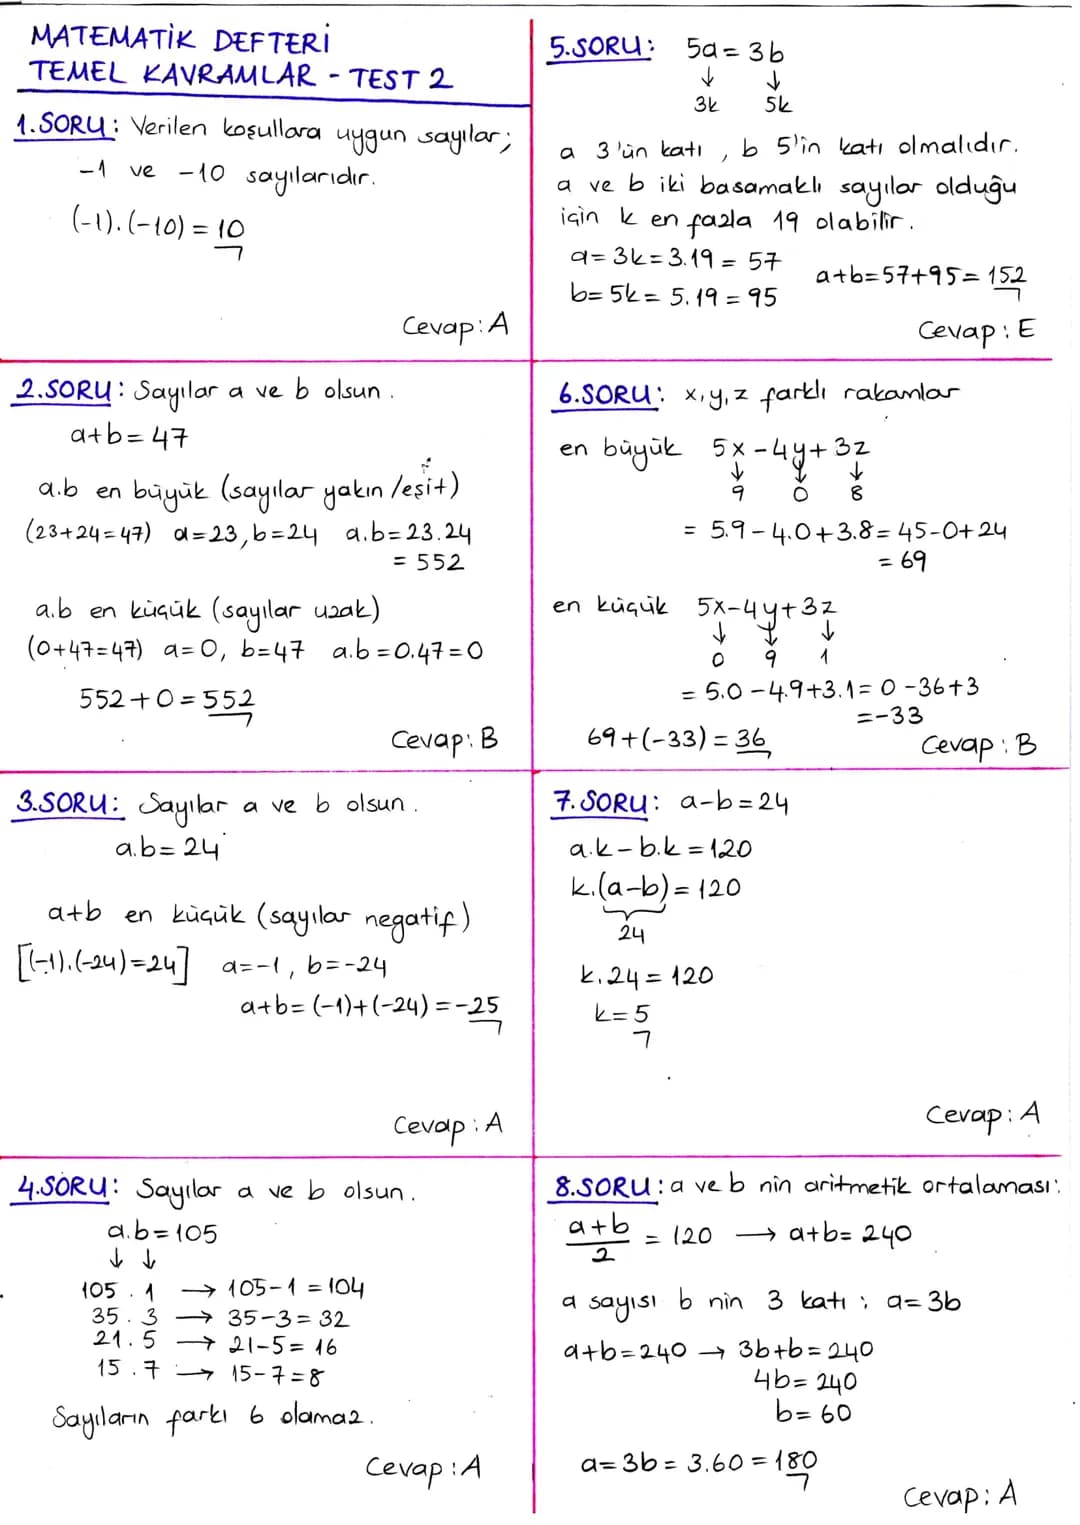 MATEMATİK DEFTERİ
TEMEL KAVRAMLAR - TEST 2
1.SORU: Verilen koşullara uygun sayılar;
-1 ve -10 sayılarıdır.
(-1).(-10) = 10
Cevap: A
2.SORU: Sayılar a ve b olsun.
a+b=47
a.b en büyük (sayılar yakın/eşit)
(23+24=47) a=23, b=24 a.b=23.24
= 552
a.b en küçük (sayılar uzak)
(0+47=47) a=0, b=47 a.b=0.47=0
552+0=552
Cevap: B
3.SORU: Sayılar a ve b olsun.
a.b=24
a+b en küçük (sayılar negatif)
[(-1).(-24)=24] a=-1, b=-24
a+b=(-1)+(-24)=-25
Cevap: A
4.SORU: Sayılar a ve b olsun.
a.b=105
↓ ↓
105 . 1 → 105-1=104
35 . 3 → 35-3=32
21 . 5 → 21-5=16
15 . 7 → 15-7=8
Sayıların farkı 6 olamaz.
Cevap: A
5.SORU: 5a=3b
↓ ↓
3k 5k
a 3'ün katı, b 5'in katı olmalıdır.
a ve b iki basamaklı sayılar olduğu
için k en fazla 19 olabilir.
a=3k=3.19=57
b=5k=5.19=95
a+b=57+95=152
Cevap: E
6.SORU: x,y,z farklı rakamlar
en büyük 5x-4y+3z
↓ ↓ ↓
9 0 8
= 5.9-4.0+3.8=45-0+24
= 69
en küçük 5x-4y+3z
↓ ↓ ↓
0 9 1
= 5.0-4.9+3.1=0-36+3
=-33
69+(-33)=36
Cevap: B
7.SORU: a-b=24
a.k-b.k=120
k.(a-b)=120
24
k.24=120
k=5
Cevap: A
8.SORU: a ve b nin aritmetik ortalaması:
a+b/2 = 120 → a+b=240
a sayısı b nin 3 katı; a=3b
a+b=240 → 3b+b=240
4b=240
b=60
a=3b=3.60=180
Cevap: A